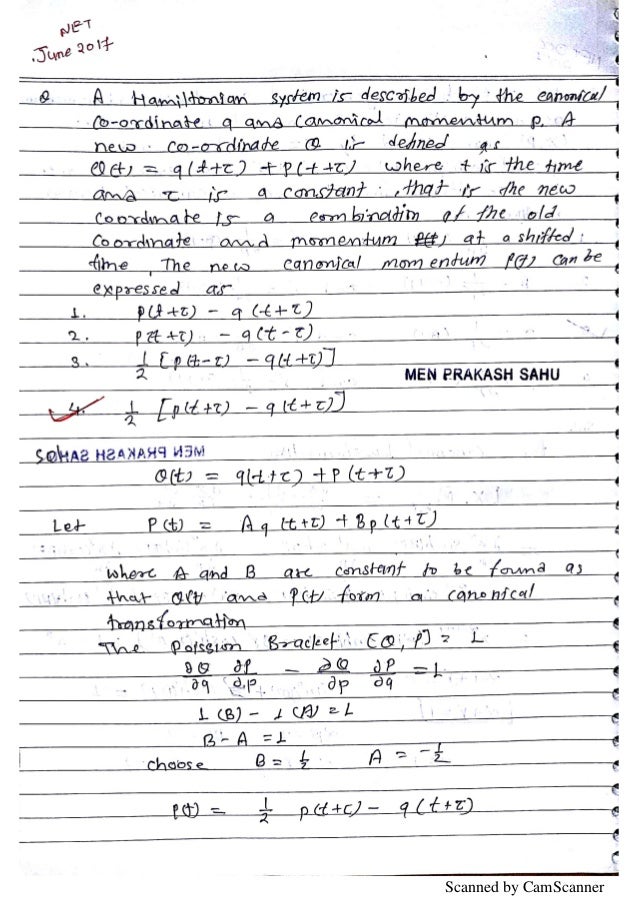 NET
June 2017
Q. A Hamiltonian system is described by the canonical
Co-ordinate q and canonical momentum p. A
new co-ordinate Q is defined as
Q(t) = q(t+τ) + P(t+τ) where t is the time
and τ is a constant, that is the new
coordinate is a combination of the old
coordinate and momentum at a shifted
time, The new canonical momentum P(t) can be
expressed as
1. p(t+τ) - q(t+τ)
2. p(t+τ) - q(t-τ)
3. 1/2 [p(t-τ) - q(t+τ)]
MEN PRAKASH SAHU
4. 1/2 [p(t+τ) - q(t+τ)]
MEN PRAKASH SAHU
Q(t) = q(t+τ) + P(t+τ)
Let P(t) = Aq(t+τ) + Bp(t+τ)
where A and B are constant to be found as
that Q(t) and P(t) form a canonical
transformation
The Poission Bracket [Q, P] = 1
∂Q/∂q ∂P/∂p - ∂Q/∂p ∂P/∂q = 1
1(B) - 1(A) = 1
B - A = 1
choose B = 1/2 A = -1/2
P(t) = 1/2 p(t+τ) - q(t+τ)
Scanned by CamScanner